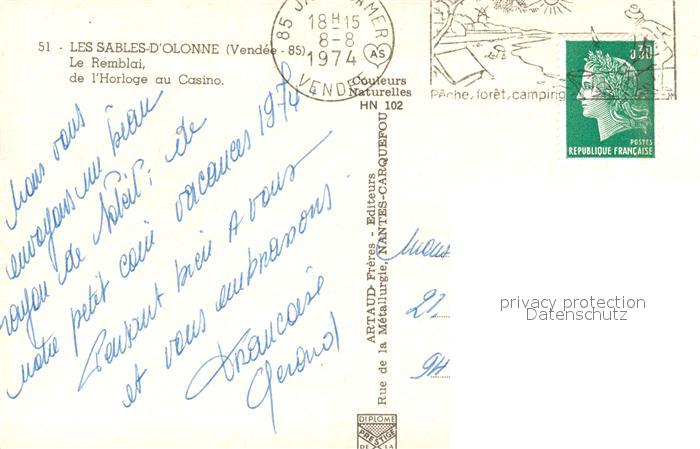 51 - LES SABLES-D'OLONNE (Vendée - 85)
Le Remblai,
de l'Horloge au Casino.
85 MER
18H15
8-8
1974
AS
VENDÉE
Pêche, forêt, camping
0,30
POSTES
REPUBLIQUE FRANÇAISE
Couleurs
Naturelles
HN 102
Nous vous
envoyons un beau
rayon de soleil; de
notre petit coin vacances 1974
Pensant bien A vous
et vous embrassons.
Francoise
Gerard
ARTAUD Frères - Editeurs
Rue de la Métallurgie, NANTES-CARQUEFOU
21
94
privacy protection
Datenschutz
DIPLOME
PRESTIGE
DE LA